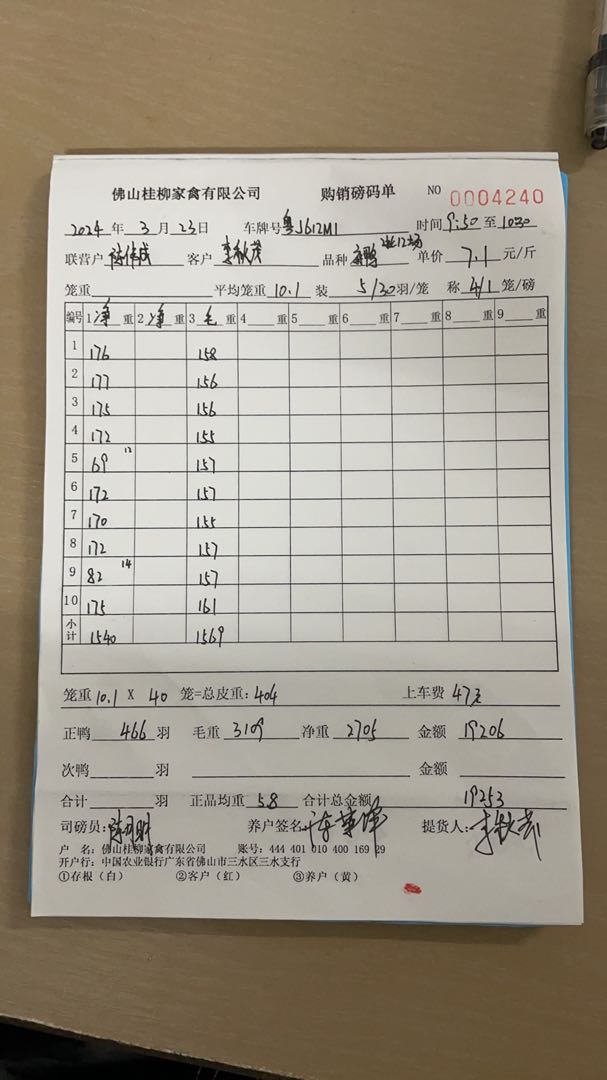 佛山桂柳家禽有限公司 购销磅码单 NO 0004240
2024年 3月 23日 车牌号 粤J612M1 时间 9:50 至 1030
联营户 客户 李秋茂 品种 单价 7.1 元/斤
笼重 平均笼重 10.1 装 5/30 羽/笼 称 4/1 笼/磅
编号 1 净 重 2 净 重 3 毛 重 4 重 5 重 6 重 7 重 8 重 9 重
1 176 158
2 177 156
3 175 156
4 172 155
5 69 12 157
6 172 157
7 170 155
8 172 157
9 82 14 157
10 175 161
小计 1540 1569
笼重 10.1 X 40 笼=总皮重: 404 上车费 47元
正鸭 466 羽 毛重 3109 净重 2705 金额 19206
次鸭 羽 金额
合计 羽 正品均重 5.8 合计总金额 19253
司磅员: 养户签名 提货人: 李秋茂
户 名: 佛山桂柳家禽有限公司 账号: 444 401 010 400 169 29
开户行: 中国农业银行广东省佛山市三水区三水支行
①存根(白) ②客户(红) ③养户(黄)